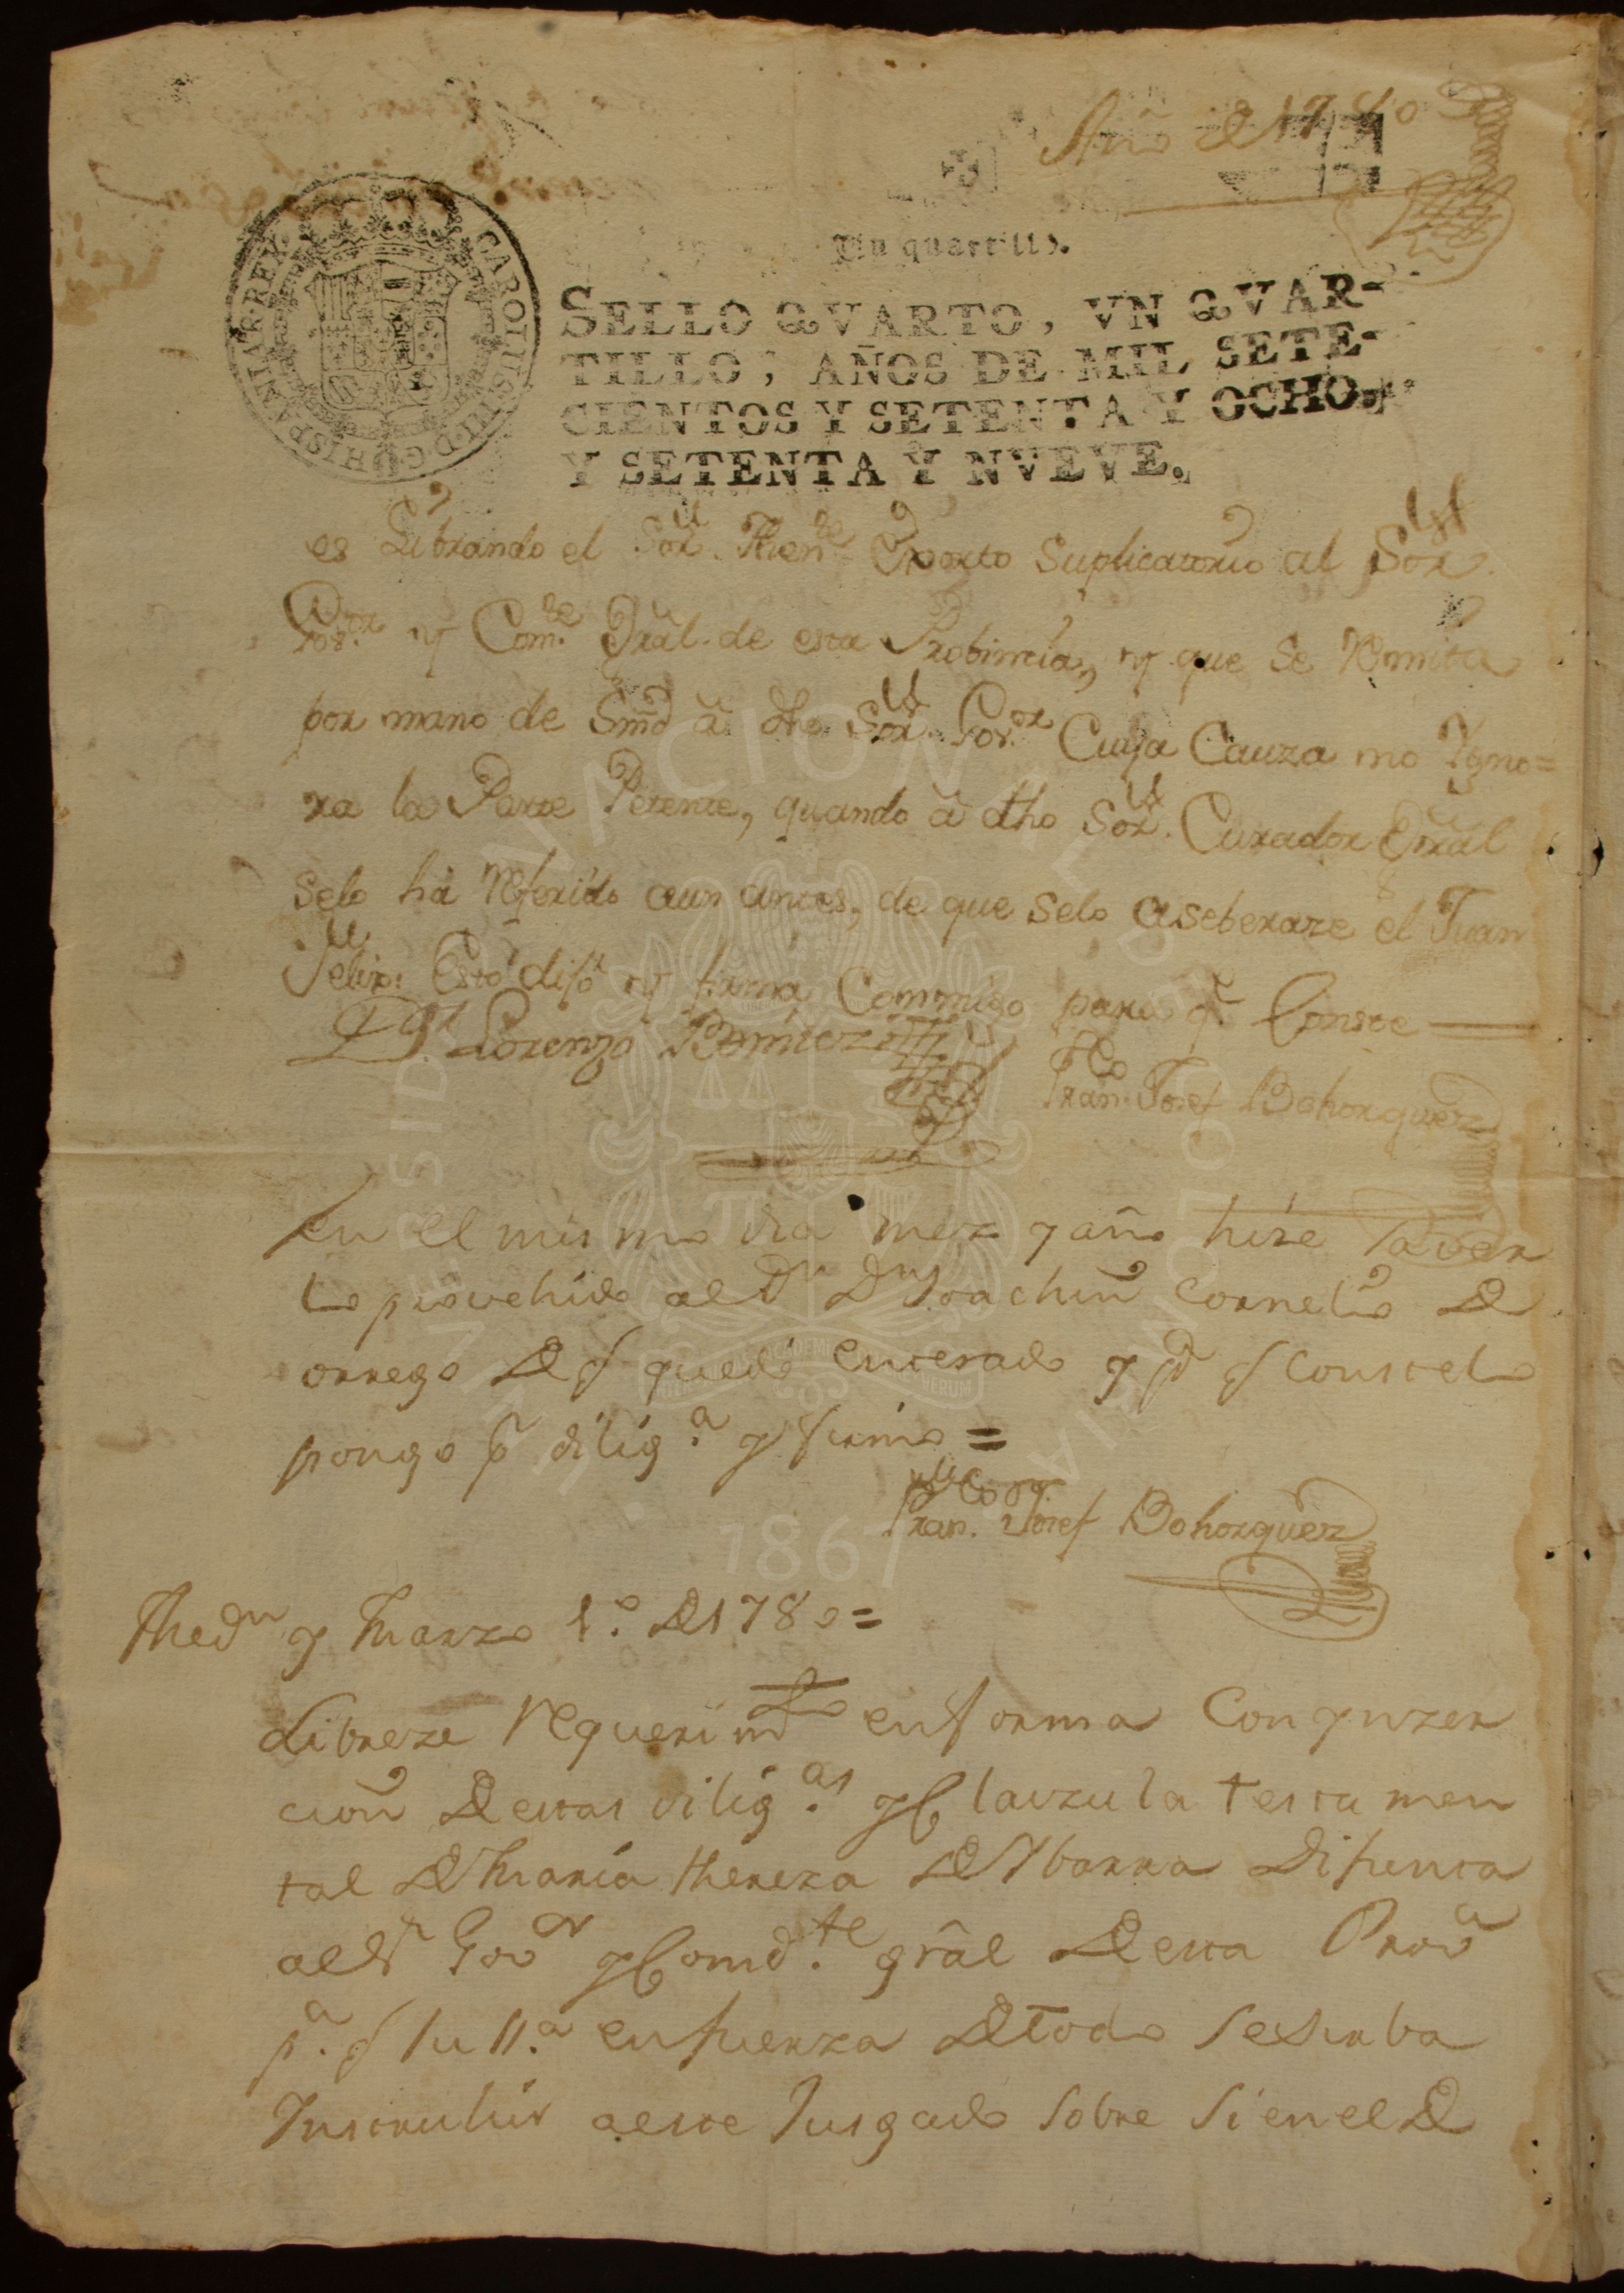 Año de 1780
Un quartillo.
CAROLUS III D G HISPANIAR REX
SELLO QVARTO, VN QVAR-
TILLO, AÑOS DE MIL SETE-
CIENTOS Y SETENTA Y OCHO,
Y SETENTA Y NVEVE.
es Librando el Sor. Thente. Exorto Suplicatorio al Sor.
Govor. y Comte. Gral. de esta Probincia, y que se Remita
por mano de Smd â dho Sor. Govor. Cuya Cauza no Ygno=
ra la Parte Petente, quando â dho Sor. Curador Gral
selo hà Referido aun antes, de que selo aseberare el Juan
Felix: Esto dijo y firma Conmigo para q. Conste
Dr. Lorenzo Remirez
Franco. Josef Bohorquez
En el mismo dia mez y año hize saver
lo provehido al Dr Dn Joachin Cornelio de
orrego de q quedó enterado y pa q Conste lo
pongo pr dilig.a y firmo =
Franco. Josef Bohorquez
Medn y Marzo 1.º de 1780=
Librese Requerimto en forma Con ynzer
cion de estas dilig.as y Clauzula testamen
tal de Maria thereza de Ybarra Difunta
al Sr Govor y Comd.te grâl de esta Prova
p.a q su Sa. en fuerza de todo se sirba
Instruhir a este Jusgado sobre si en el de